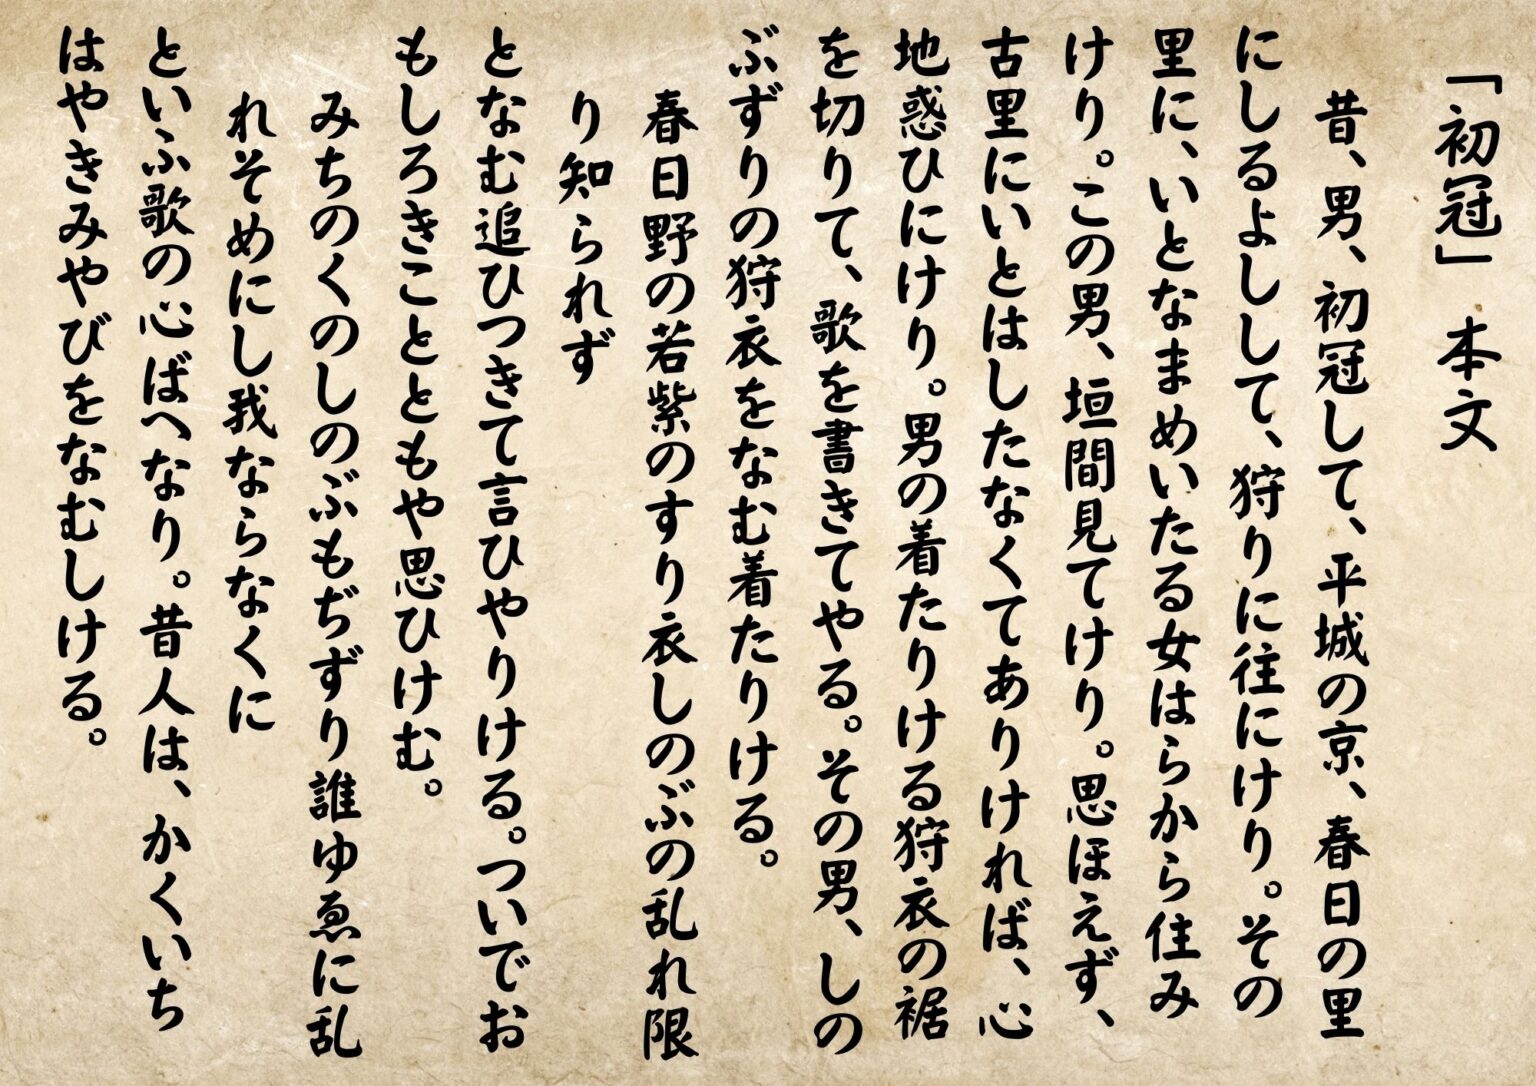 「初冠」 本文
昔、男、初冠して、平城の京、春日の里
にしるよしして、狩りに往にけり。その
里に、いとなまめいたる女はらから住み
けり。この男、垣間見てけり。思ほえず、
古里にいとはしたなくてありければ、心
地惑ひにけり。男の着たりける狩衣の裾
を切りて、歌を書きてやる。その男、しの
ぶずりの狩衣をなむ着たりける。
春日野の若紫のすり衣しのぶの乱れ限
り知られず
となむ追ひつきて言ひやりける。ついでお
もしろきことともや思ひけむ。
みちのくのしのぶもぢずり誰ゆゑに乱
れそめにし我ならなくに
といふ歌の心ばへなり。昔人は、かくいち
はやきみやびをなむしける。